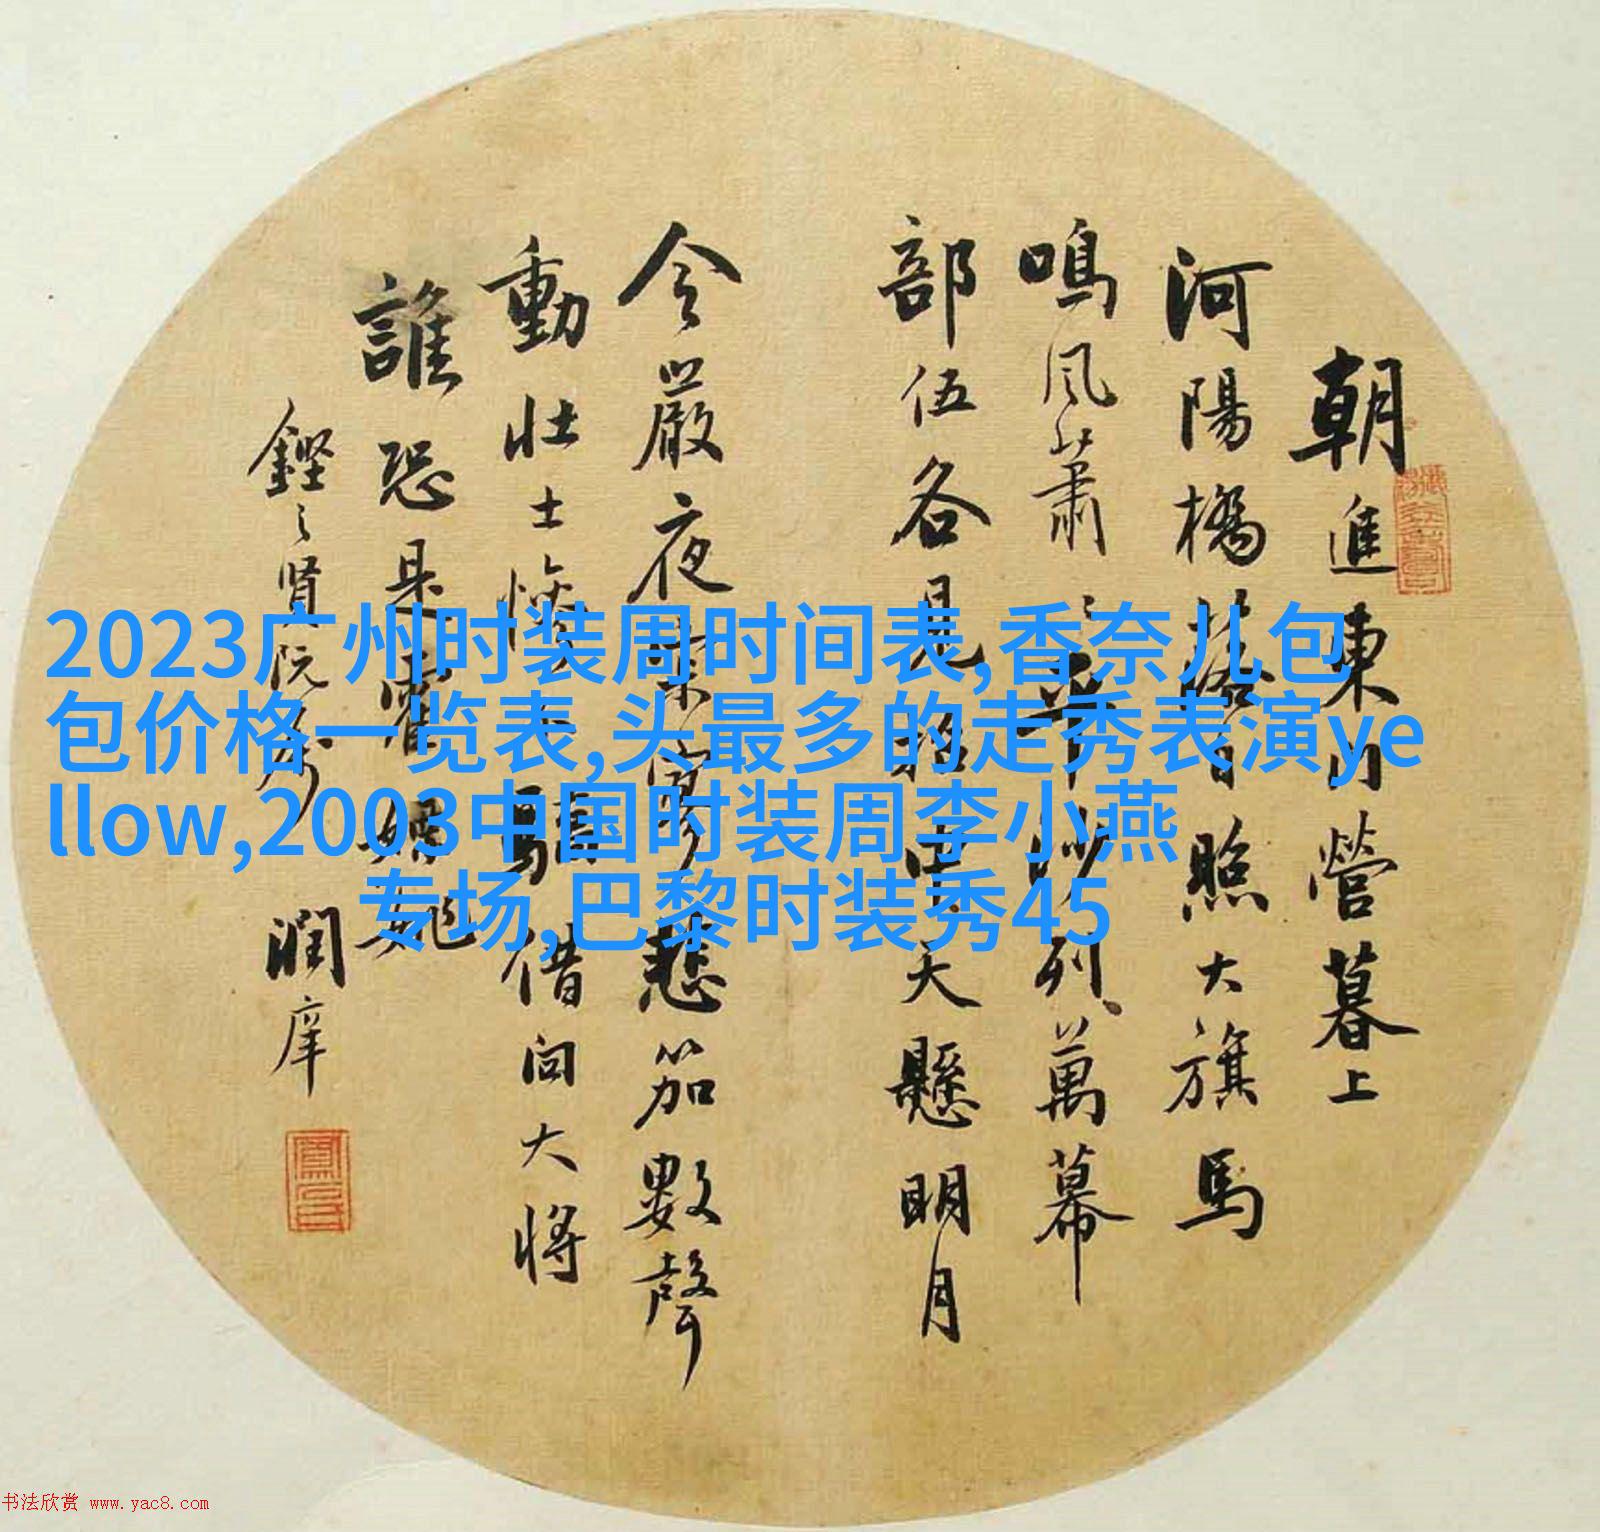 朝進東門營暮上
河陽橋落日照大旗馬
鳴風蕭〻平沙列萬幕
部伍各見招中天懸明月
令嚴夜寂寥悲笳數聲
動壯士慘不驕借問大將
誰恐是霍嫖姚
賢阮 潤庠
2023广州时装周时间表,香奈儿包
包价格一览表,头最多的走秀表演ye
llow,2003中国时装周李小燕
专场,巴黎时装秀45
书法欣赏 www.yac8.com